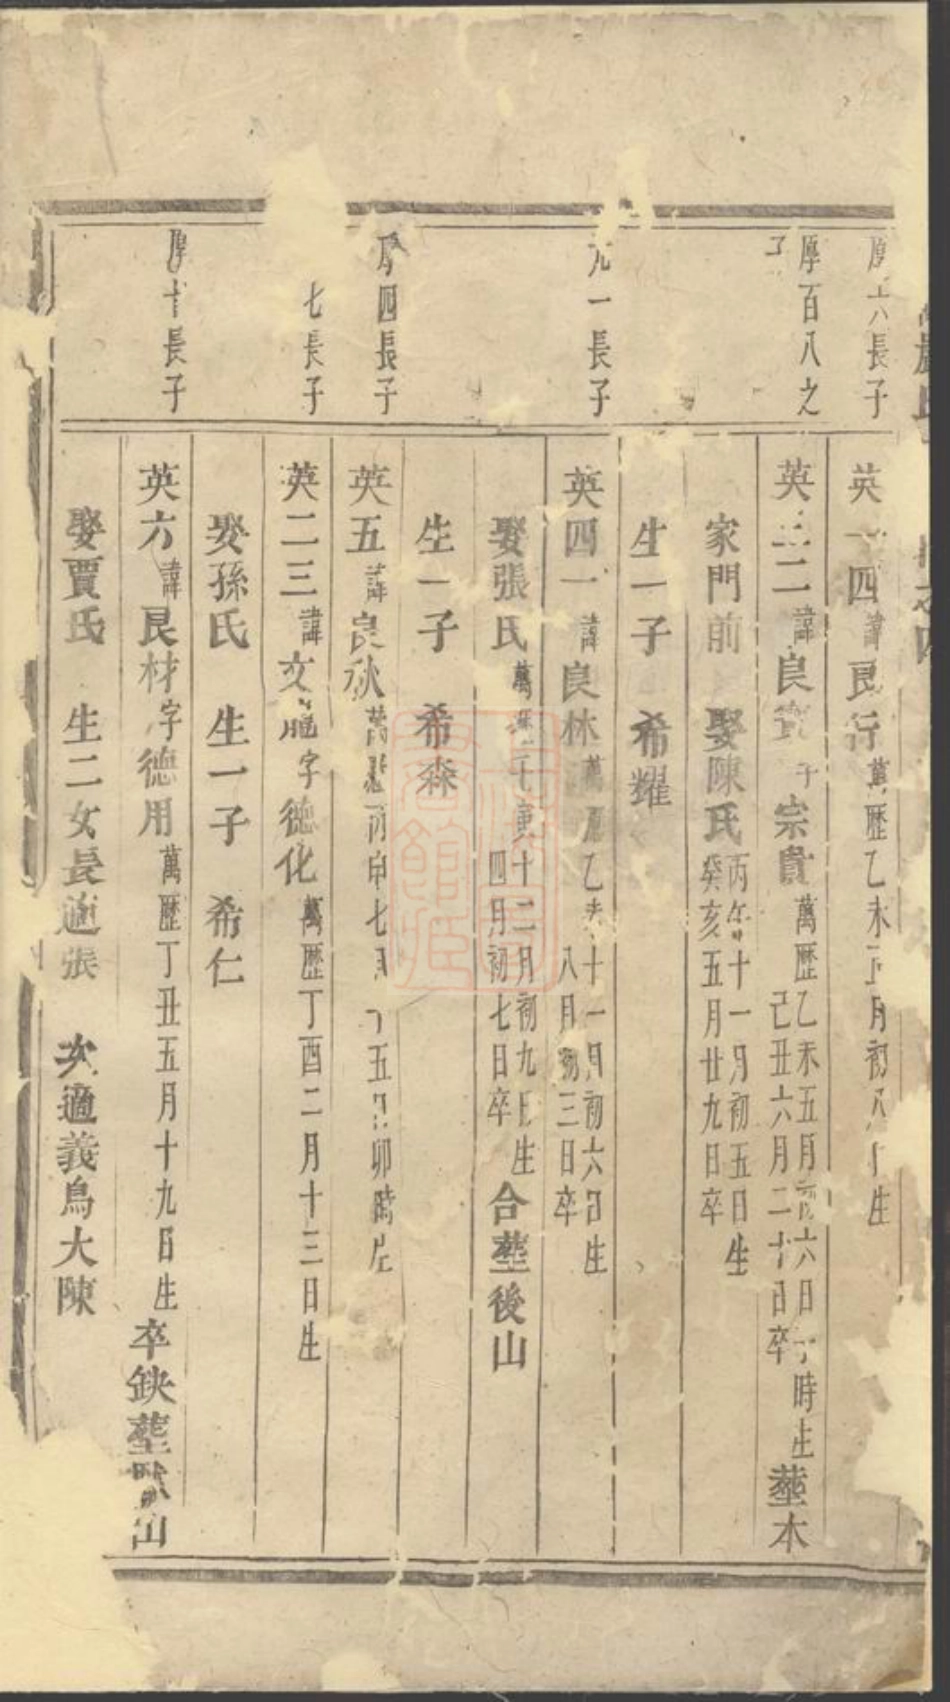 長子
英 四諱良行萬歷乙未正月初八日生
厚百八之
子
英 二諱良 字宗貴萬歷乙未五月初六日子時生
己丑六月二十日卒
塟本
家門前 娶陳氏丙午十一月初五日生
癸亥五月廿九日卒
生一子 希耀
一長子
英四一諱良林萬歷乙未十一月初六日生
八月初三日卒
娶張氏萬歷 十二月初九日生
四月初七日卒
合塟後山
生一子 希森
厚四長子
英五諱良秋萬歷丙申七月十五日卯時生
七長子
英二三諱文 字德化萬歷丁酉二月十三日生
娶孫氏 生一子 希仁
厚十長子
英六諱良材字德用萬歷丁丑五月十九日生卒缺塟 山
娶賈氏 生二女長適張 次適義烏大陳